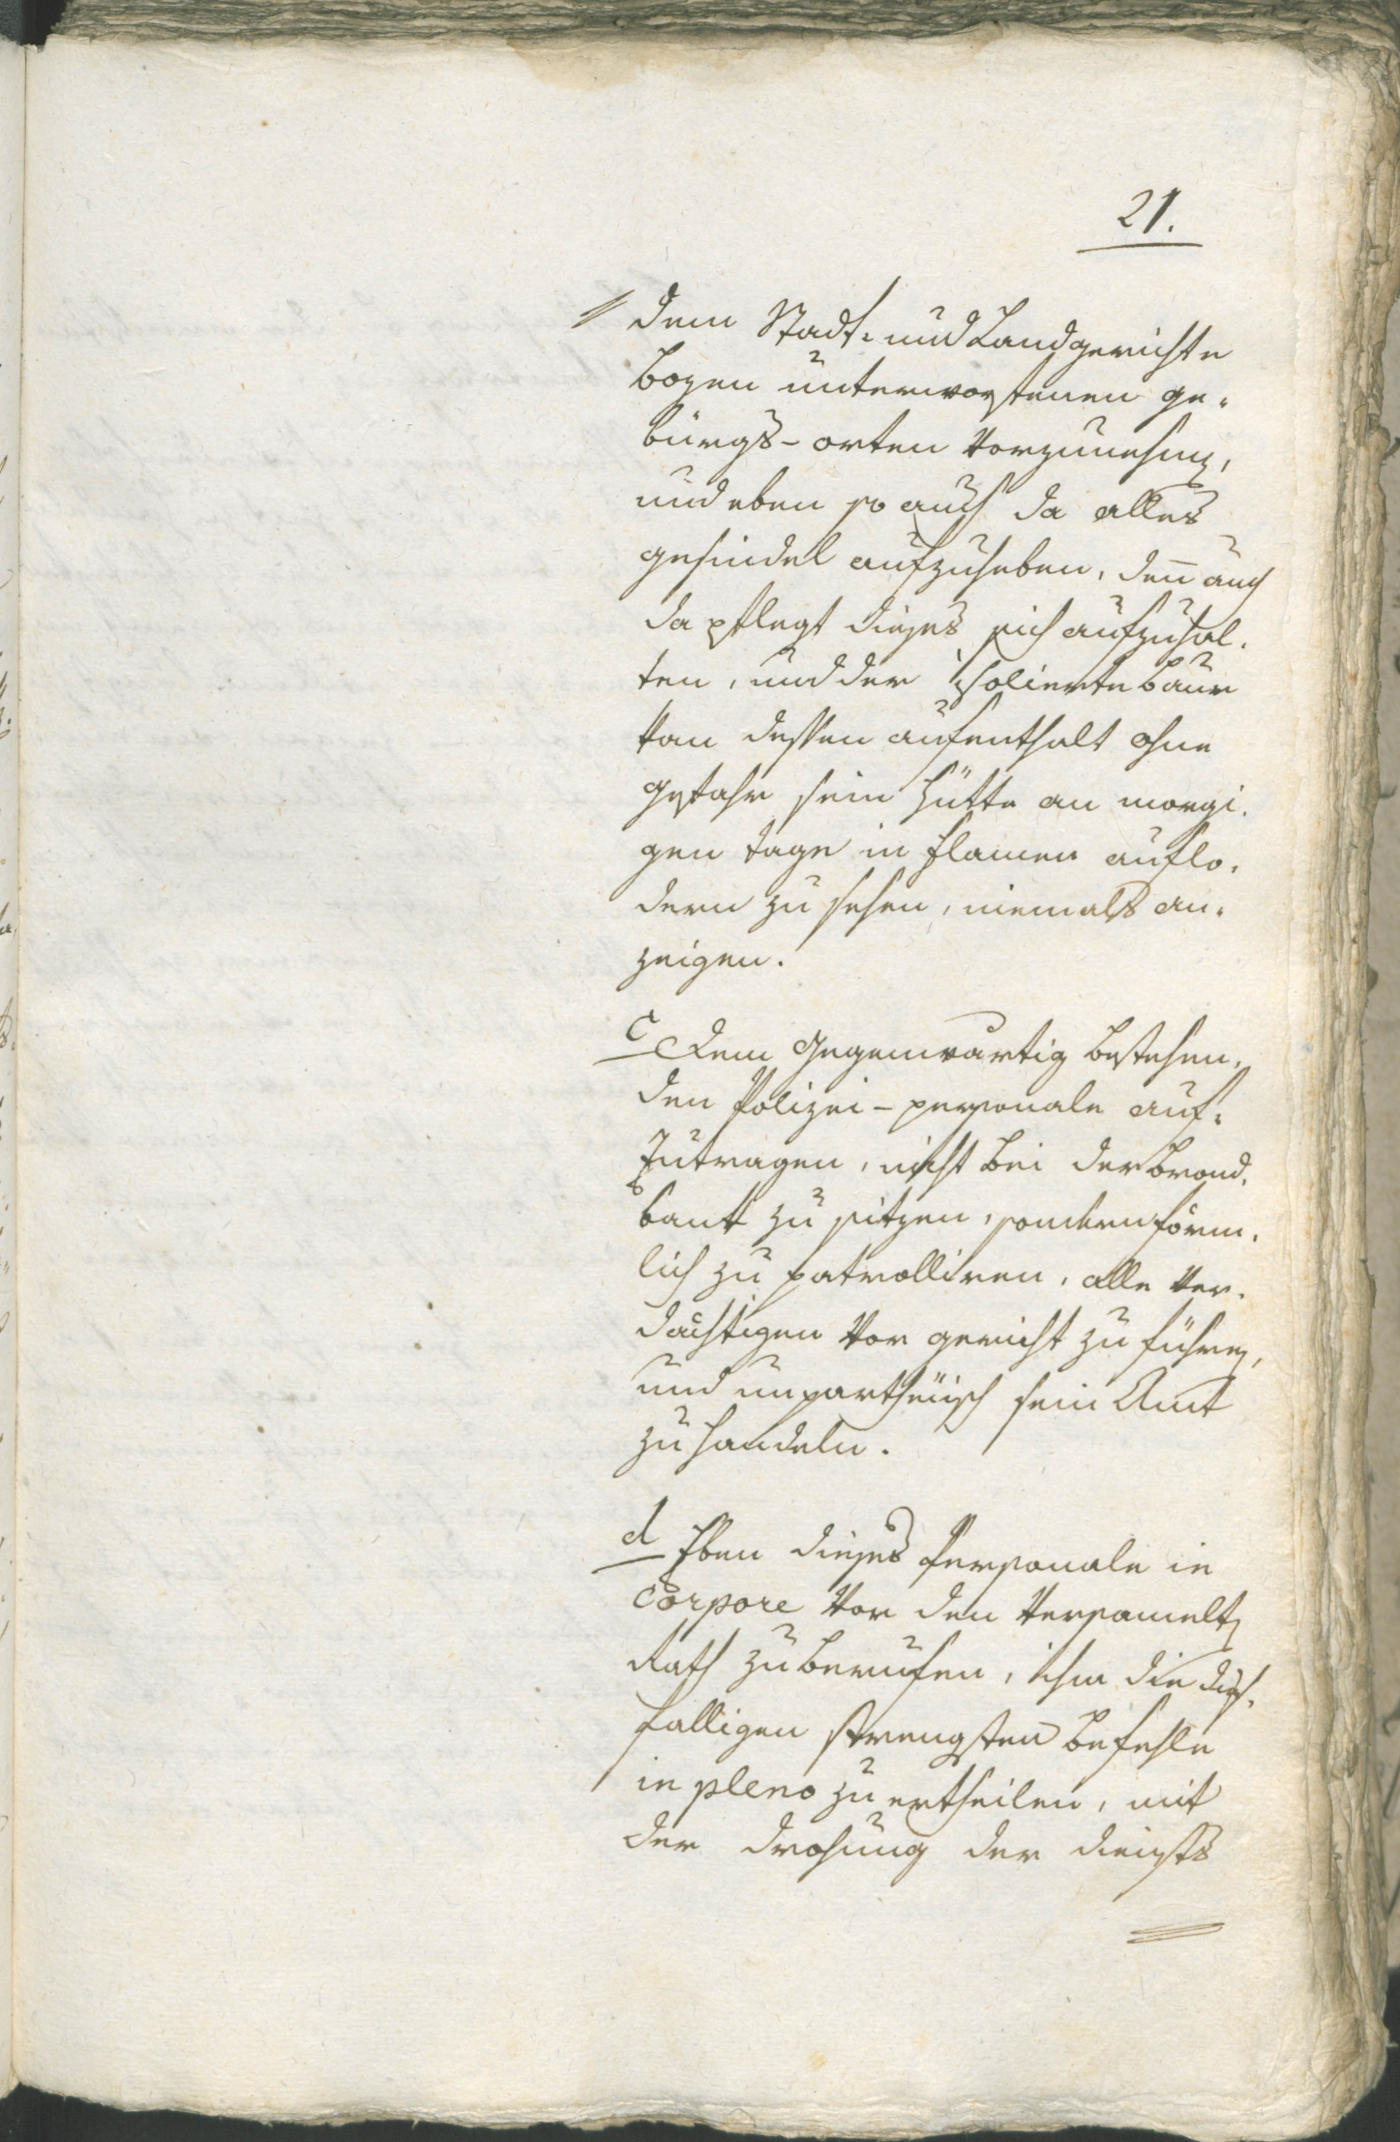 21.
// dem Stadt- und Landgerichte
Bozen unterworfenen Ge-
bürgs-orten vorzunehmen,
und eben so auch da alles
gesindel aufzuheben, denn auch
da pflegt dieses sich aufzuhal-
ten, und der isolierte Baur
kan dessen aufenthalt ohne
gefahr sein Hütte an morgi-
gen tage in flamen auflo-
dern zu sehen, niemals an-
zeigen.
c Dem gegenwärtig bestehen-
den Polizei-personale auf-
zutragen, nicht bei der brand-
bank zu sitzen, sondern förm-
lich zu patrolliren, alle Ver-
dächtigen vor gericht zu führen,
und unpartheiisch sein Amt
zu handeln.
d Eben dieses Personale in
Corpore vor den versamelten
Rath zu berufen, ihm die dies-
falligen strengsten befehle
in pleno zu ertheilen, mit
der drohung der diensts
//